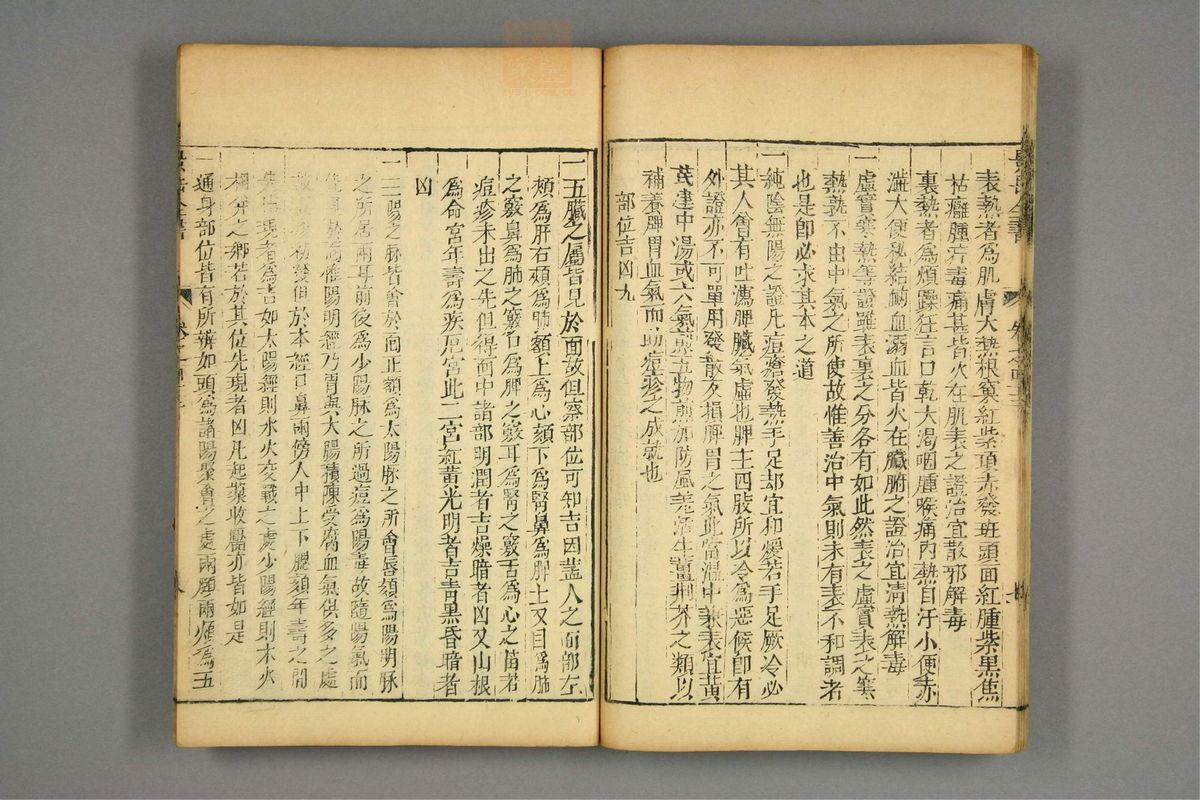 表熱者為肌膚大熱根窠紅紫項赤發班頭面紅腫紫黑焦
枯癰腫疔毒痛甚皆火在肌表之證治宜散邪解毒
裏熱者為煩躁狂言口乾大渴咽腫喉痛內熱自汗小便赤
澁大便秘結衂血溺血皆火在臟腑之證治宜清熱解毒
一虛實寒熱等證雖表裏之分各有如此然表之虛實表之寒
熱孰不由中氣之所使故惟善治中氣則未有表不和調者
也是卽必求其本之道
一純陰無陽之證凡痘瘡發熱手足却宜和煖若手足厥冷必
其人曾有吐瀉脾臟氣虛也脾主四肢所以冷為惡候卽有
外證亦不可單用發散交損脾胃之氣此當溫中兼表宜黃
茋建中湯或六氣煎五物煎加防風羌活生薑荆芥之類以
補養脾胃血氣而助痘疹之成就也
部位吉凶九
一五臟之屬皆見於面故但察部位可知吉因蓋人之面部左
頰為肝右頰為肺額上為心頦下為腎鼻為脾土又目為肺
之竅鼻為肺之竅口為脾之竅耳為腎之竅舌為心之苗若
痘疹未出之先但得面中諸部明潤者吉燥暗者凶又山根
為命宮年壽為疾厄宮此二宮紅黃光明者吉青黑昏暗者
凶
一三陽之脉皆會於面正額為太陽脉之所會唇頰為陽明脉
之所居兩耳前後為少陽脉之所過痘為陽毒故隨陽氣而
於面惟陽明經乃胃與大腸積陳受腐血氣俱多之處
初發但於本經口鼻兩傍人中上下腮頦年壽之間
先現者為吉如太陽經則水火交戰之處少陽經則木火
相并之鄉若於其位先現者凶凡起發收靨亦皆如是
一通身部位皆有所辨如頭為諸陽聚會之處兩頤兩頰為五